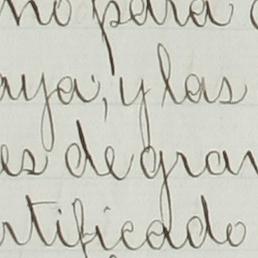 no para
aya, y las
es de gran
rtificado